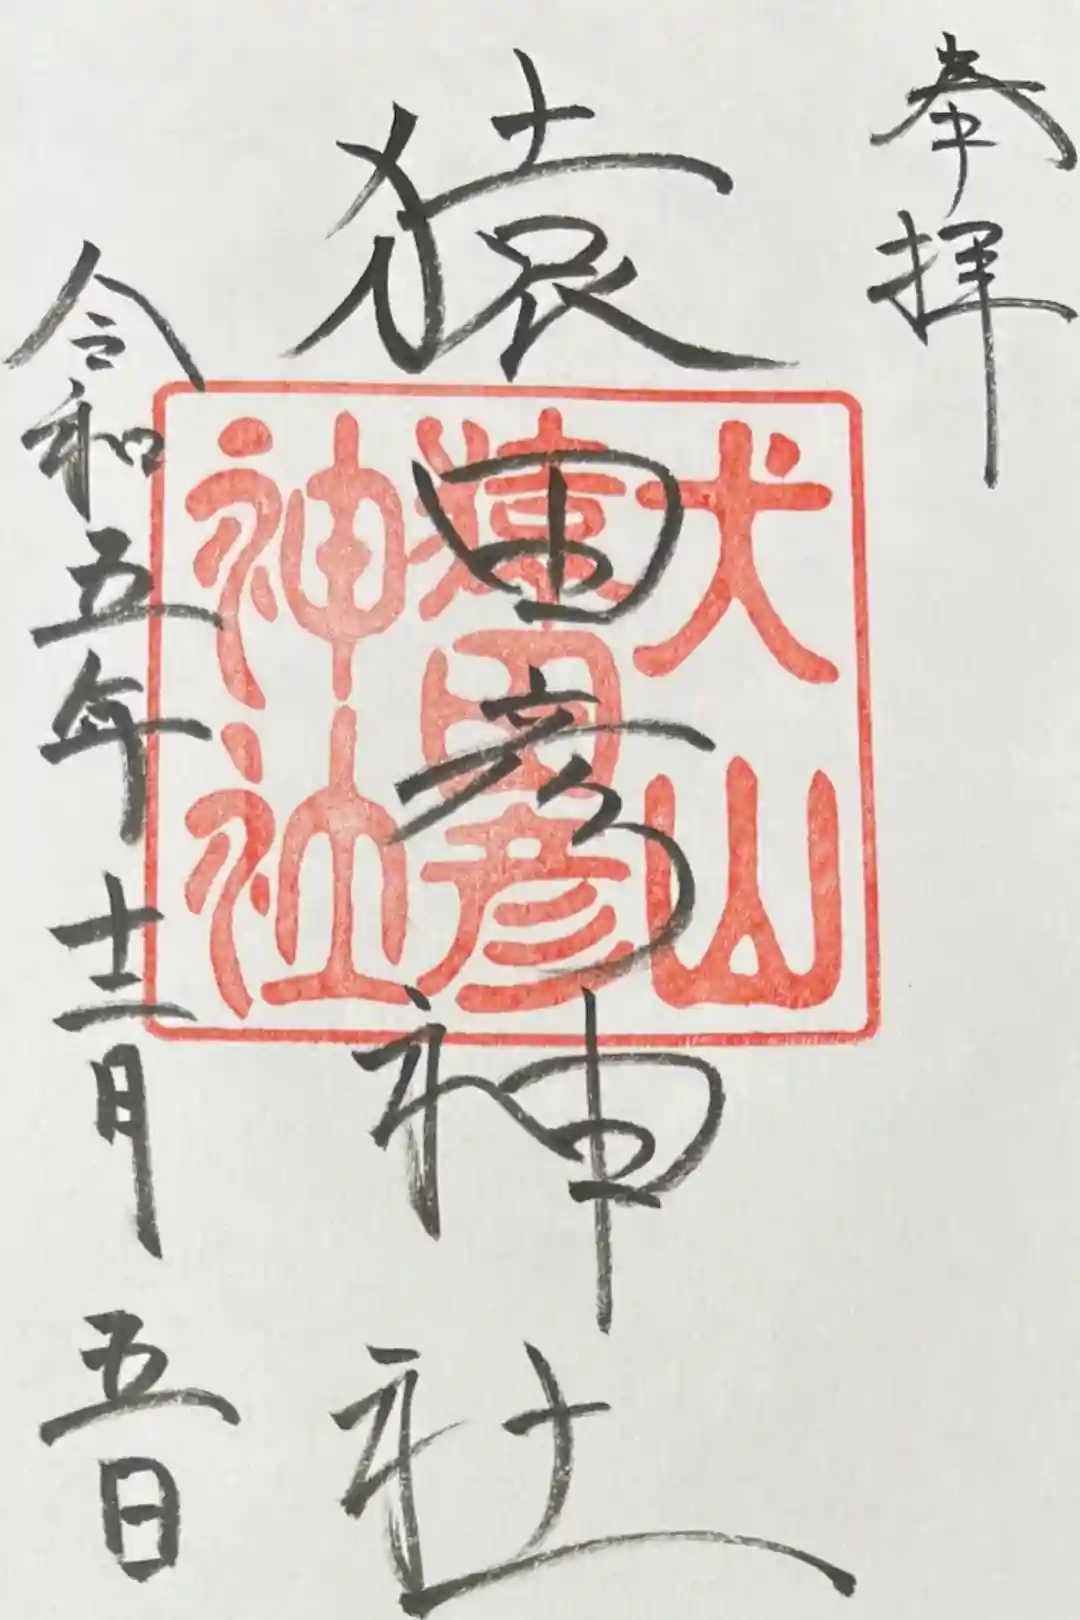 奉拝
猿田彦神社
犬山
猿田彦
神社
令和五年十二月五日